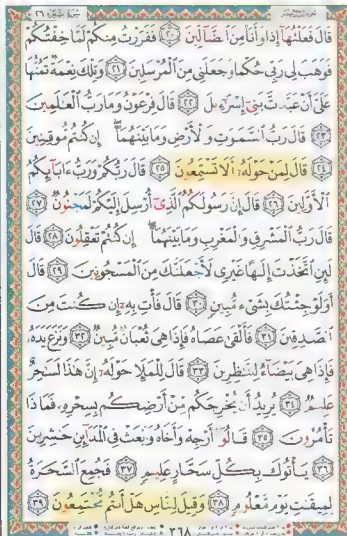 سورة الشعراء ٢٦
قَالَ فَعَلْتُهَا إِذًا وَأَنَا مِنَ الضَّالِّينَ ٢٠ فَفَرَرْتُ مِنكُمْ لَمَّا خِفْتُكُمْ
فَوَهَبَ لِي رَبِّي حُكْمًا وَجَعَلَنِي مِنَ الْمُرْسَلِينَ ٢١ وَتِلْكَ نِعْمَةٌ تَمُنُّهَا
عَلَيَّ أَنْ عَبَّدتَّ بَنِي إِسْرَائِيلَ ٢٢ قَالَ فِرْعَوْنُ وَمَا رَبُّ الْعَالَمِينَ
٢٣ قَالَ رَبُّ السَّمَاوَاتِ وَالْأَرْضِ وَمَا بَيْنَهُمَا إِن كُنتُم مُّوقِنِينَ
٢٤ قَالَ لِمَنْ حَوْلَهُ أَلَا تَسْتَمِعُونَ ٢٥ قَالَ رَبُّكُمْ وَرَبُّ آبَائِكُمُ
الْأَوَّلِينَ ٢٦ قَالَ إِنَّ رَسُولَكُمُ الَّذِي أُرْسِلَ إِلَيْكُمْ لَمَجْنُونٌ ٢٧
قَالَ رَبُّ الْمَشْرِقِ وَالْمَغْرِبِ وَمَا بَيْنَهُمَا إِن كُنتُمْ تَعْقِلُونَ ٢٨ قَالَ
لَئِنِ اتَّخَذْتَ إِلَٰهًا غَيْرِي لَأَجْعَلَنَّكَ مِنَ الْمَسْجُونِينَ ٢٩ قَالَ
أَوَلَوْ جِئْتُكَ بِشَيْءٍ مُّبِينٍ ٣٠ قَالَ فَأْتِ بِهِ إِن كُنتَ مِنَ
الصَّادِقِينَ ٣١ فَأَلْقَىٰ عَصَاهُ فَإِذَا هِيَ ثُعْبَانٌ مُّبِينٌ ٣٢ وَنَزَعَ يَدَهُ
فَإِذَا هِيَ بَيْضَاءُ لِلنَّاظِرِينَ ٣٣ قَالَ لِلْمَلَإِ حَوْلَهُ إِنَّ هَٰذَا لَسَاحِرٌ
عَلِيمٌ ٣٤ يُرِيدُ أَن يُخْرِجَكُم مِّنْ أَرْضِكُم بِسِحْرِهِ فَمَاذَا
تَأْمُرُونَ ٣٥ قَالُوا أَرْجِهْ وَأَخَاهُ وَابْعَثْ فِي الْمَدَائِنِ حَاشِرِينَ
٣٦ يَأْتُوكَ بِكُلِّ سَحَّارٍ عَلِيمٍ ٣٧ فَجُمِعَ السَّحَرَةُ
لِمِيقَاتِ يَوْمٍ مَّعْلُومٍ ٣٨ وَقِيلَ لِلنَّاسِ هَلْ أَنتُم مُّجْتَمِعُونَ ٣٩
٣٦٨